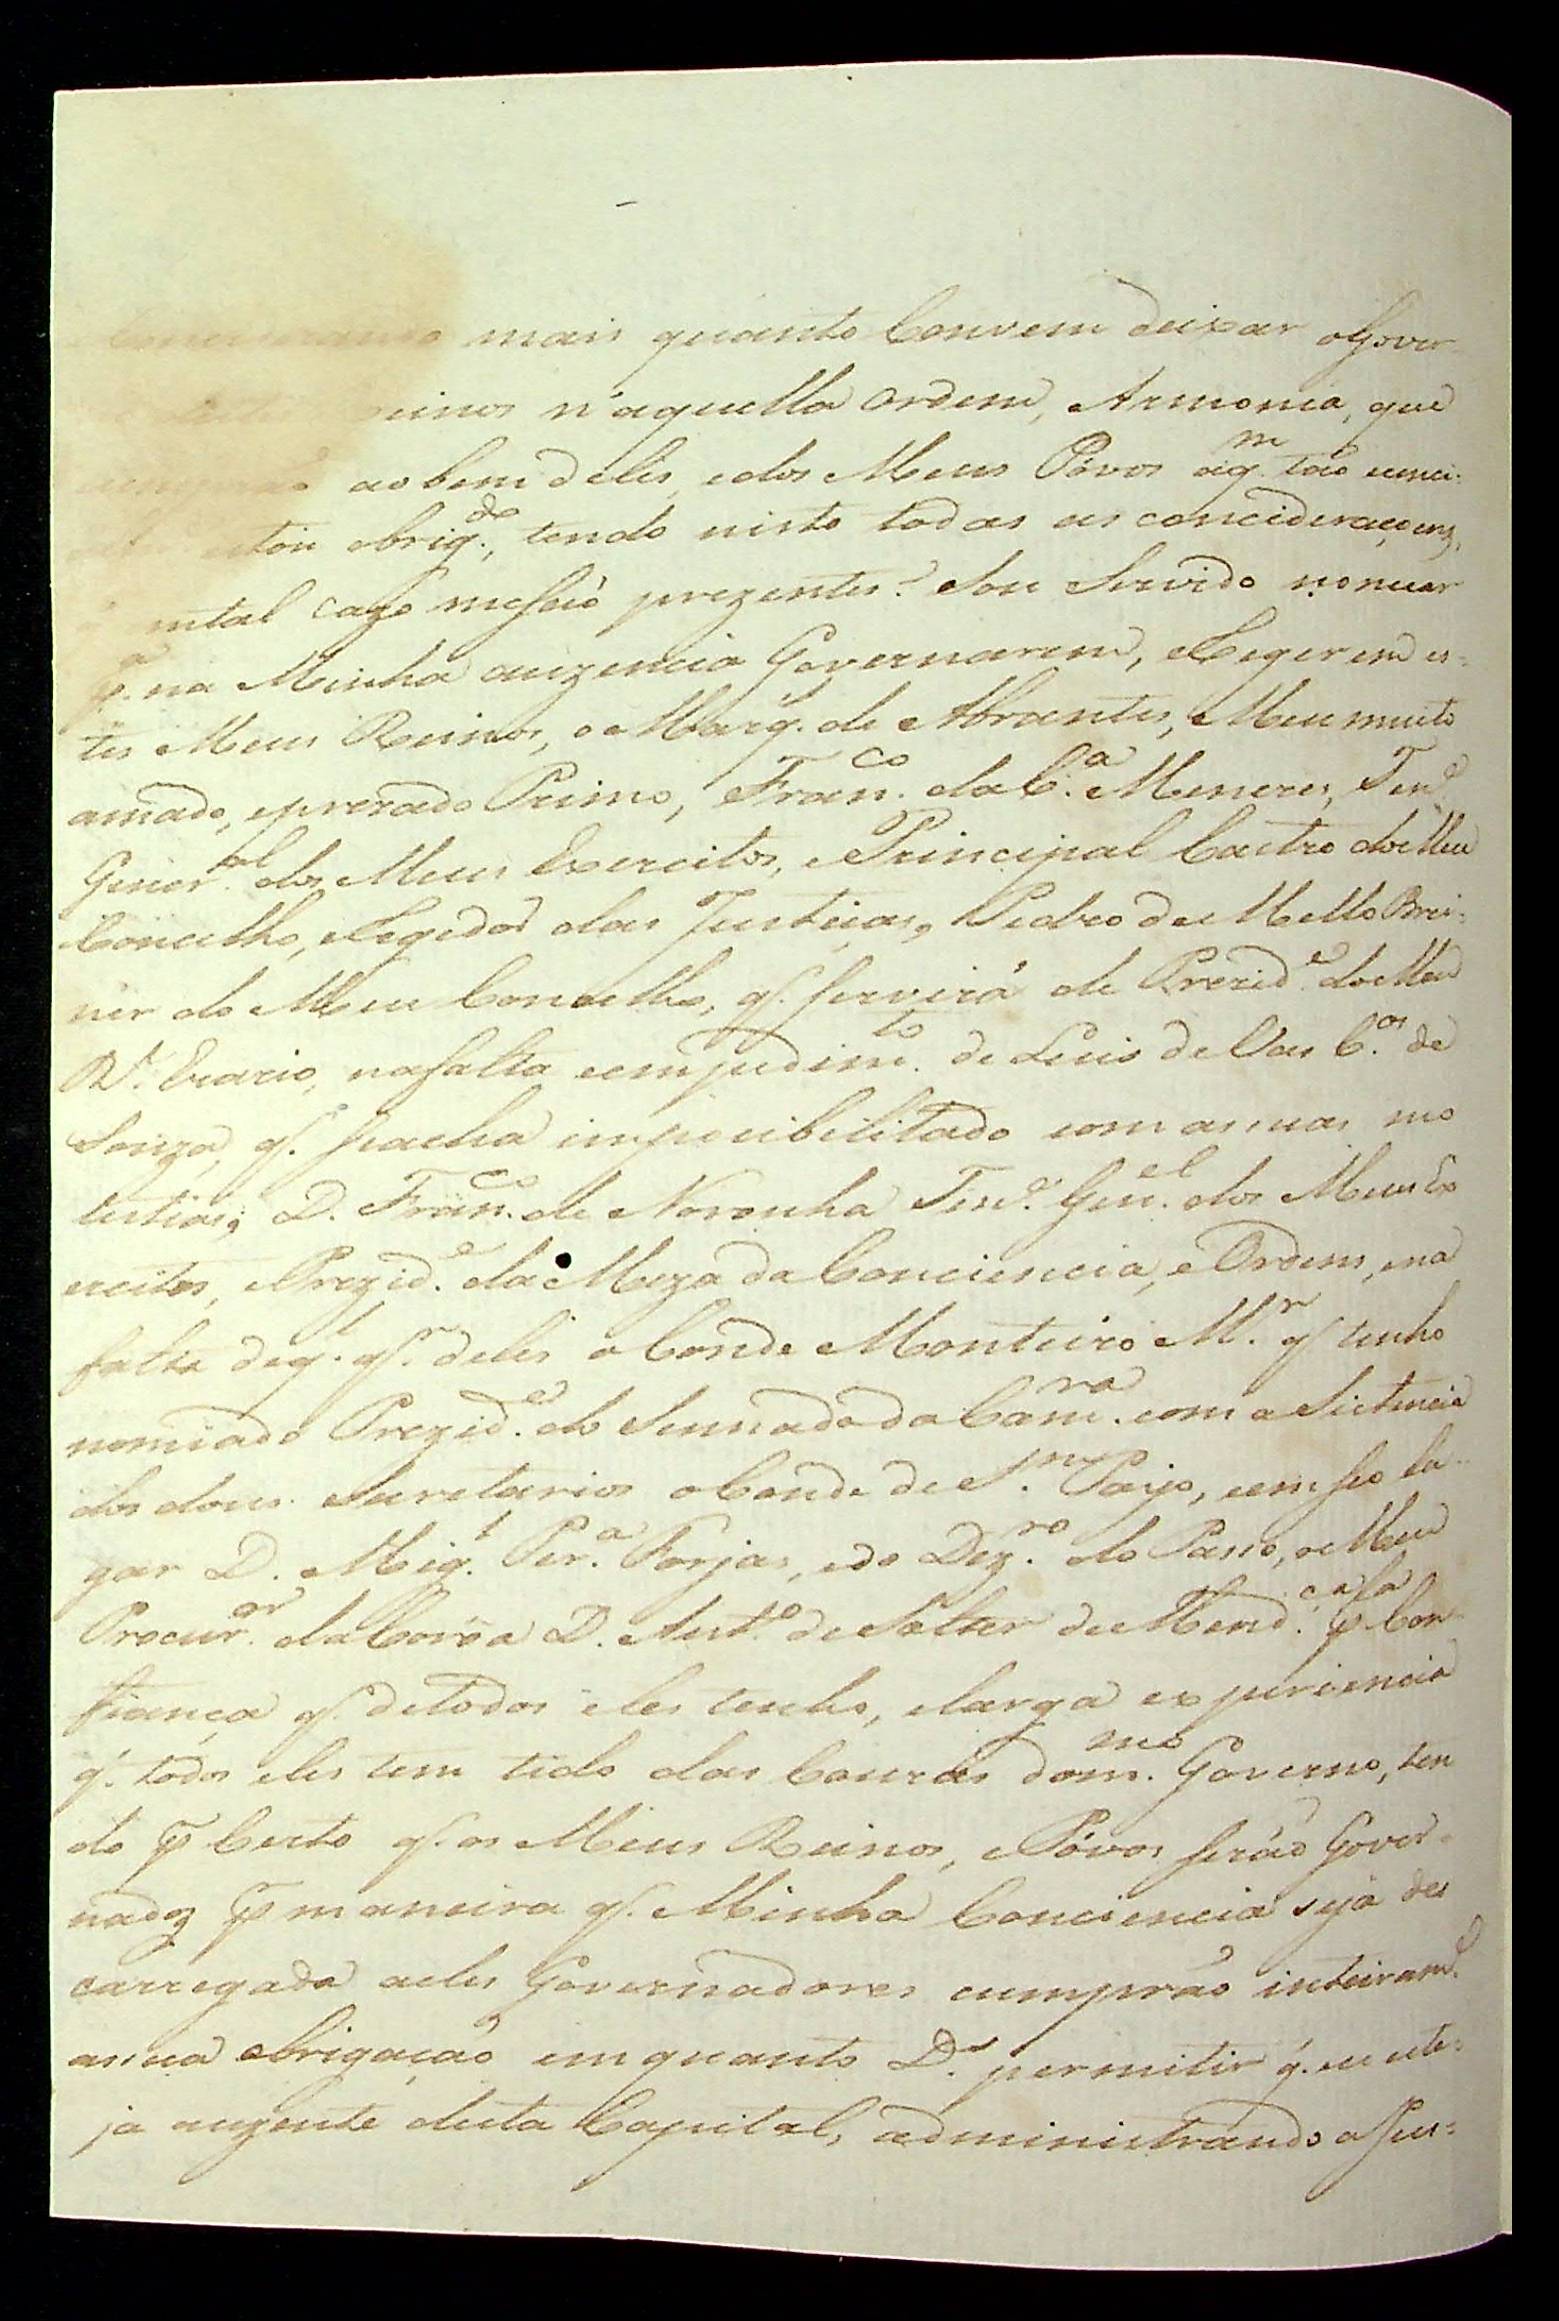 mais quanto Convem deixar oGover
einos n'aquella Ordem, Armonia, que
ao bem deles, edos Meus Póvos aq.m tão eenci-
estou obrig.do, tendo nisto todas as concideraçoens,
emtal cazo mesaõ prezentes: Sou Servido nomear
p.a na Minha auzencia Governarem, eRegerem es-
tes Meus Reinos, o Marq. de Abrantes, Meu muito
amado, eprezado Primo, Fran.co daC.a Menezes, Ten.e
Gener.al dos Meus Exercitos, o Principal Castro doMeu
Concelho, eRegedor das Justiças, Pedro de Mello Brei-
ner do Meu Concelho, q. servirá de Prezid.e doMeu
R.l Erario, nafalta eempedim.to de Luis de Vas C.os de
Souza, q. seacha impocibilitado com assuas mo
lestias; D. Fran.co de Noronha Ten.e Gen.el dos Meus Ex
ercitos, ePrezid.e da Meza da Conciencia, e Ordens, ena
falta deq.l q.r deles o Conde Monteiro M.r q tenho
nomiado Prezid.e do Sennado da Cam.ra com a Sistencia
dos dous Secretarios o Conde de S.m Payo, eem seo lu-
gar D. Mig.l Per.a Forjas, edo Dez.ro do Passo, e Meu
Procur.or da Corôa D. Ant.o de Salter de Mend.ca pla Con-
fiança q. detodos eles tenho, elarga experiencia
q. todos eles tem tido das Couzas dom.mo Governo, ten
do p Certo q. os Meus Reinos, e Póvos seraõ Gover-
nados p maneira q. Minha Conciencia seja des
carregada eeles Governadores cumpraõ inteiram.e
assua obrigaçaõ emquanto D.s permitir q. eu este-
ja auzente desta Capital, administrando a Jus-